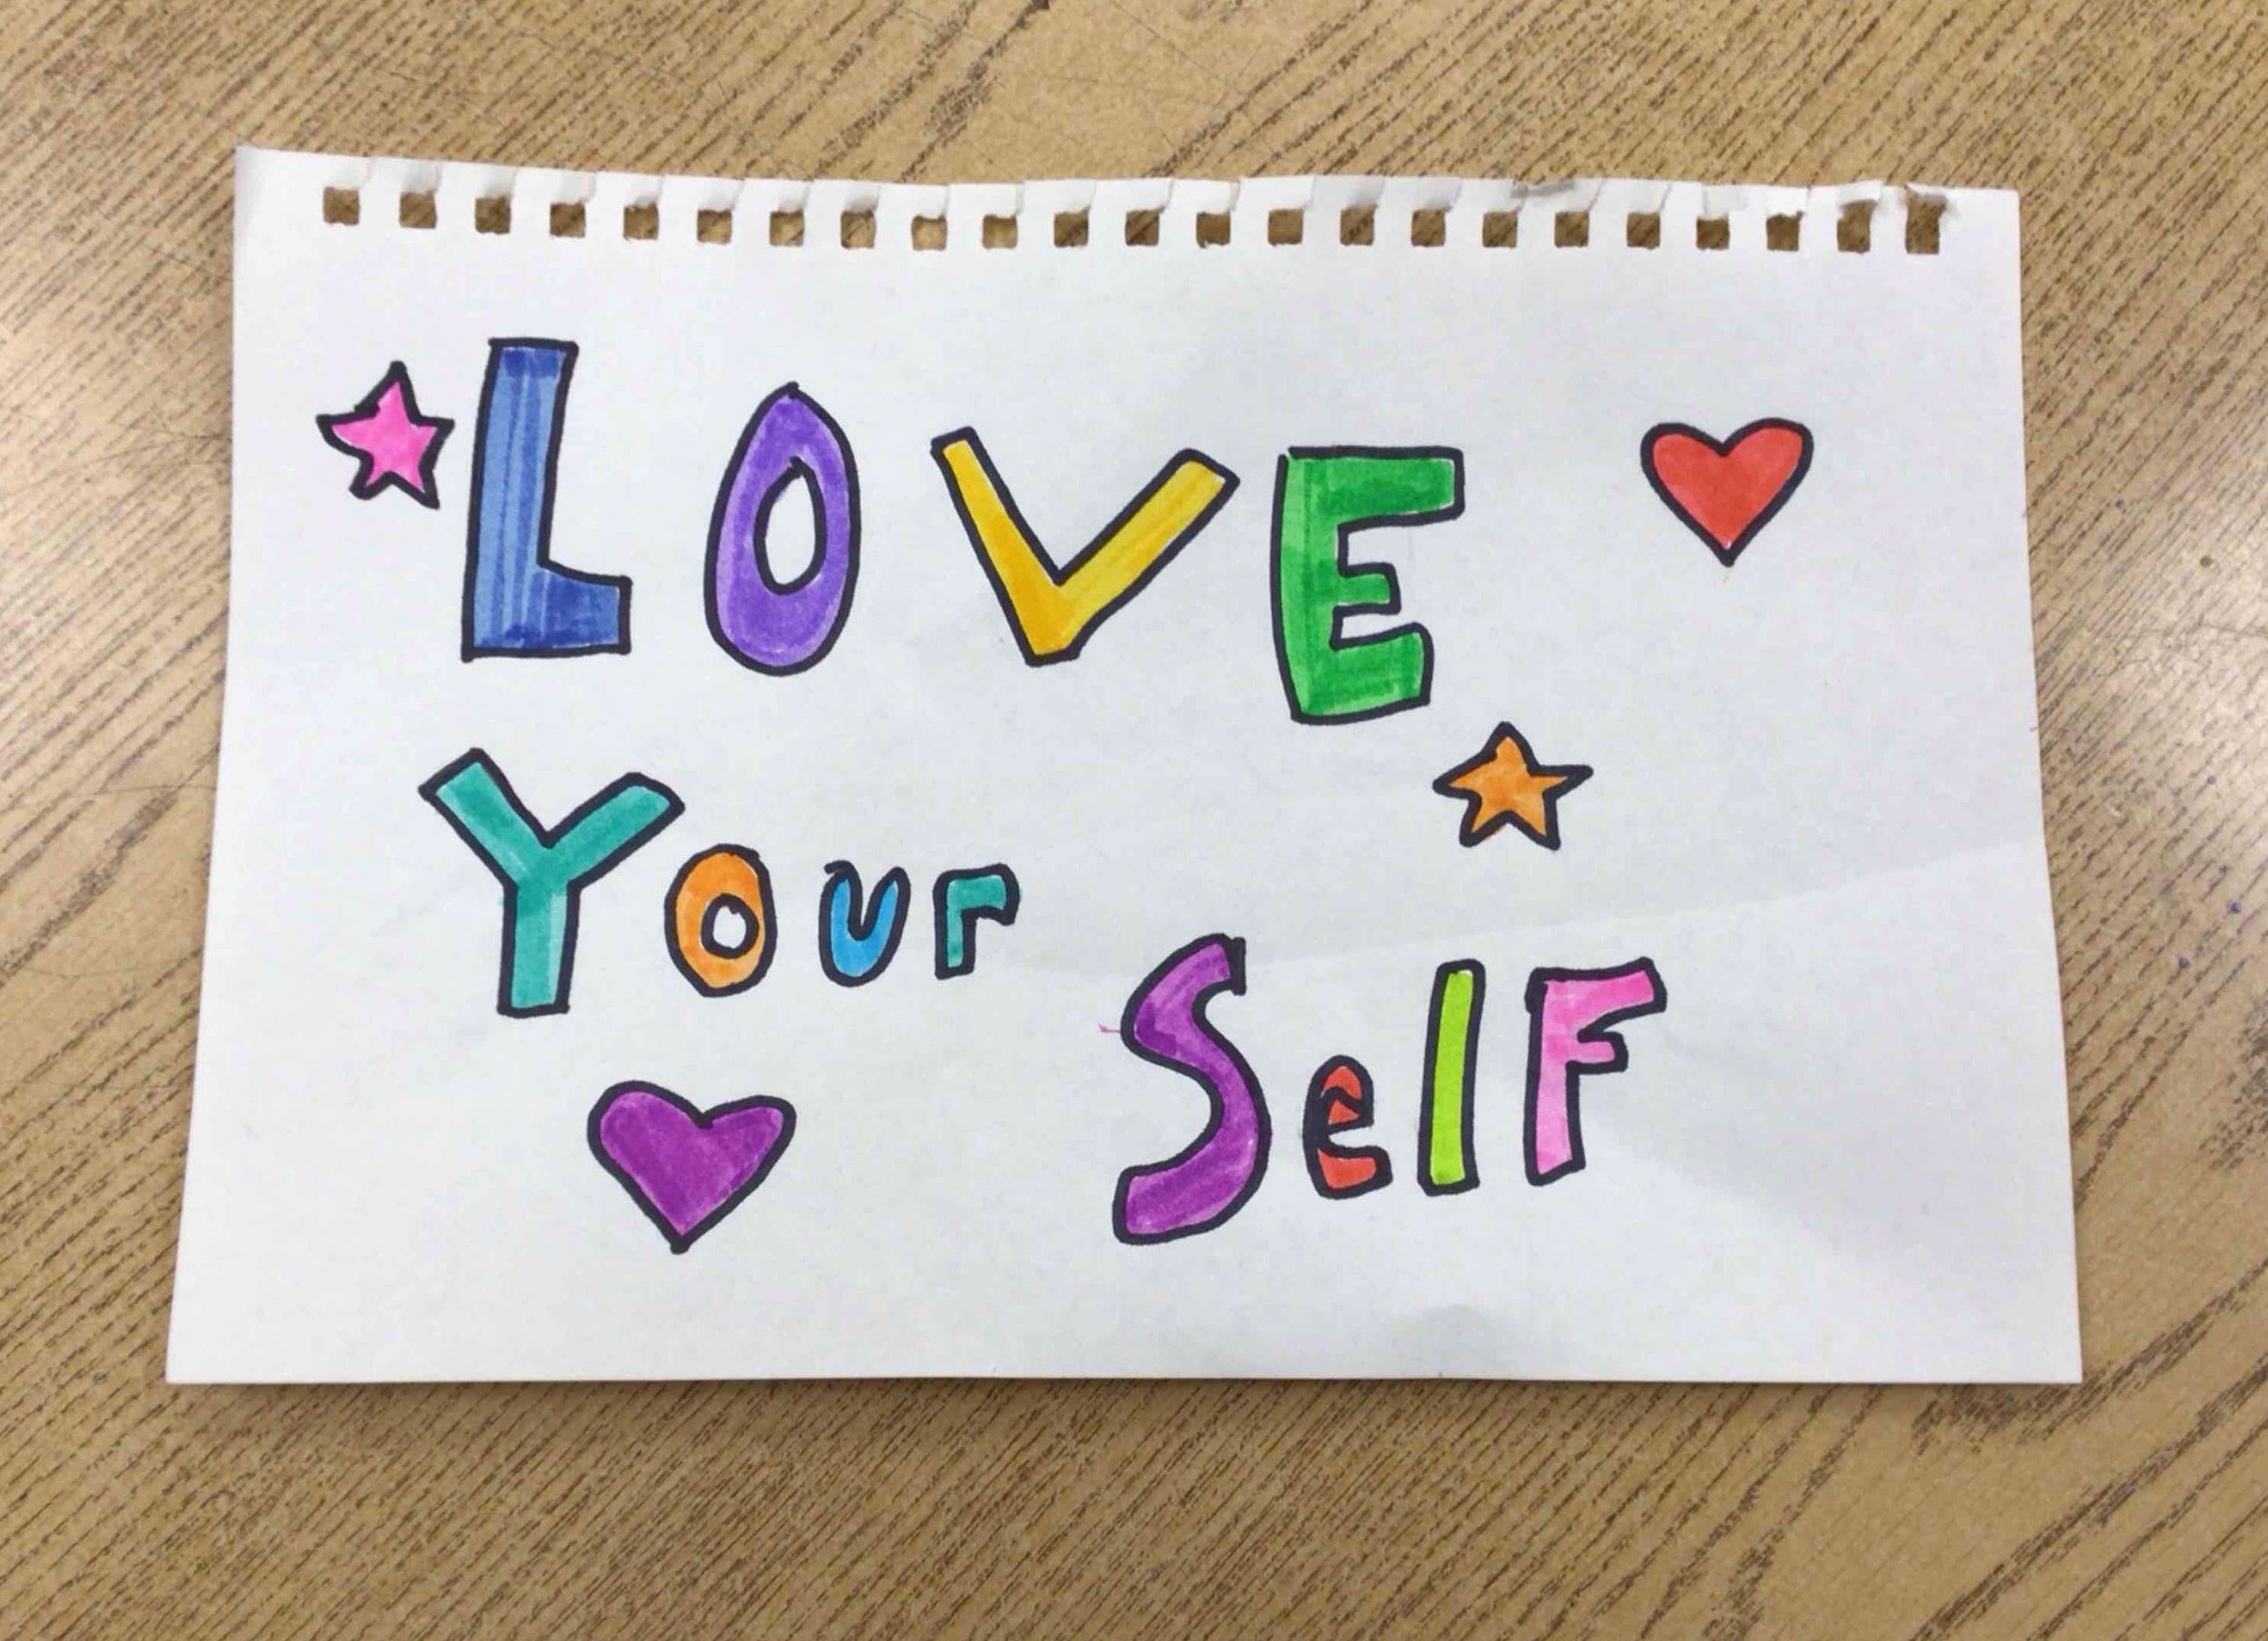 LOVE
Your
SelF